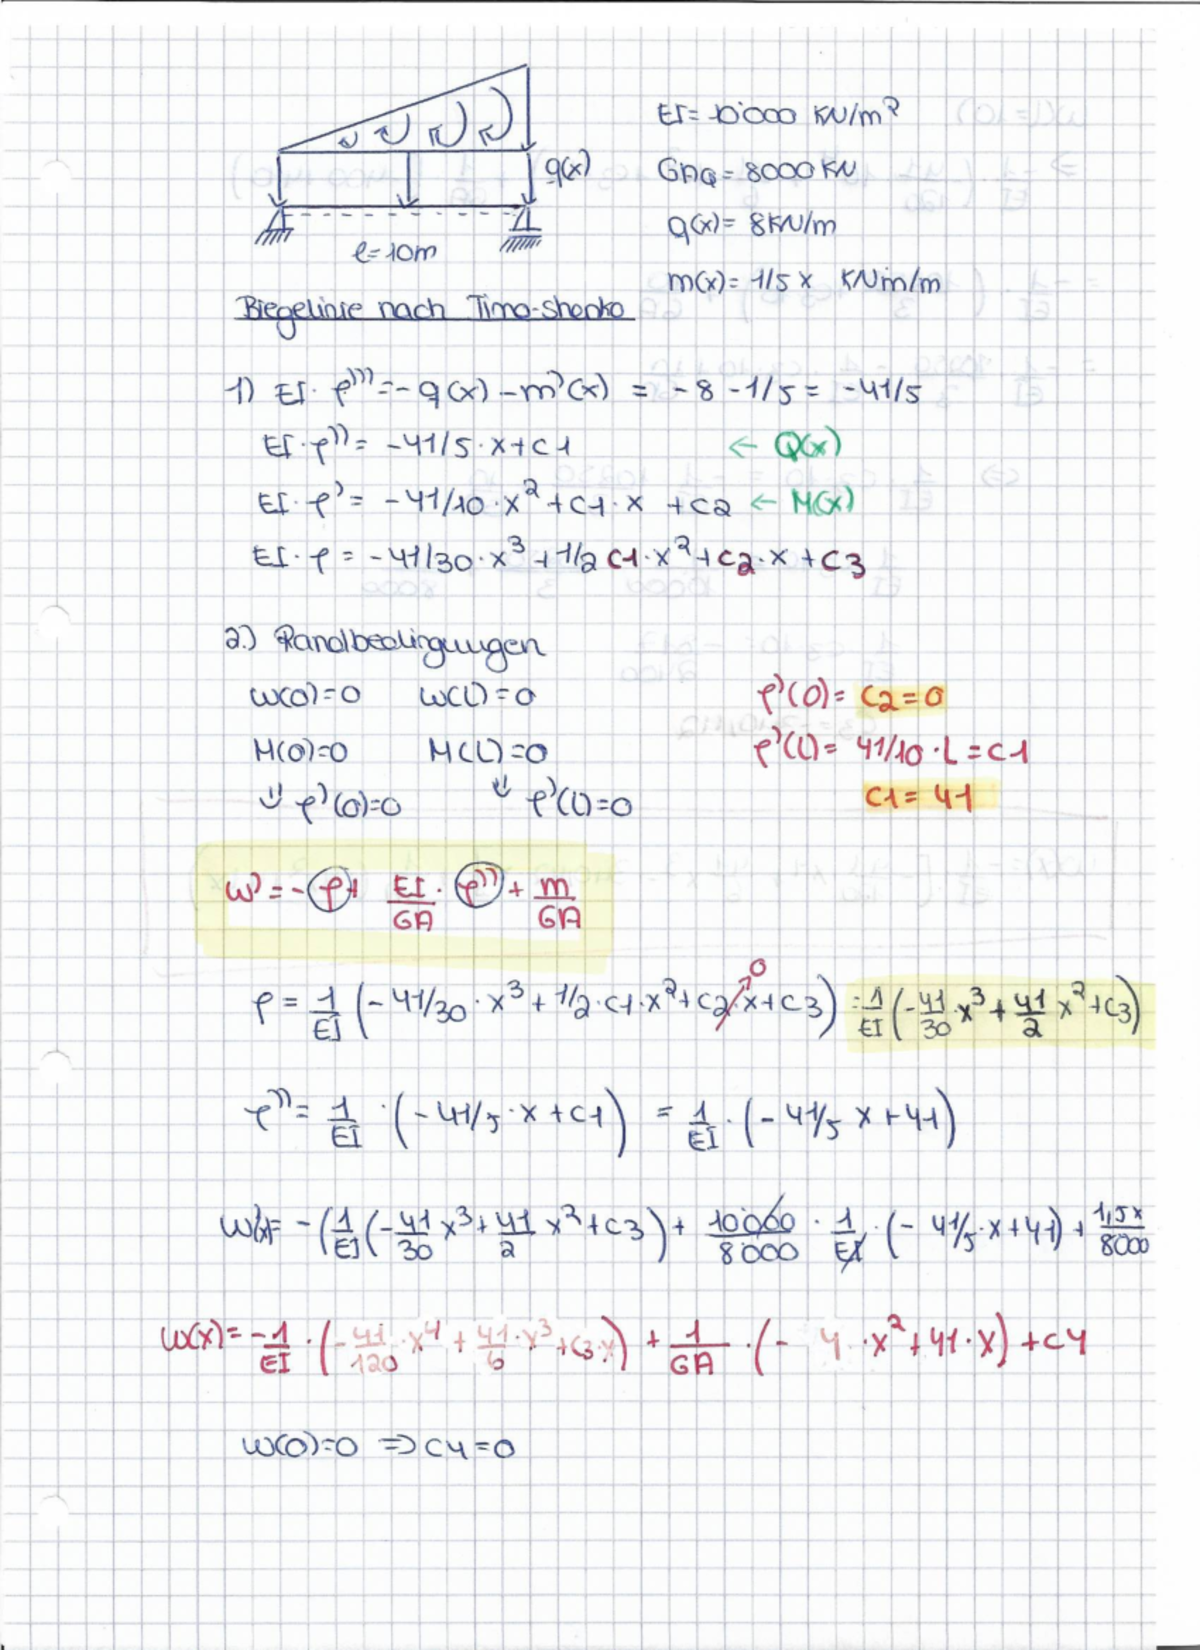 EI = 10'000 KN/m²
GAQ = 8000 KN
q(x)
q(x) = 8 KN/m
l = 10m
m(x) = 1/5 x KNm/m
Biegelinie nach Timo-Shenko
1) EI · φ''' = - q(x) - m'(x) = - 8 - 1/5 = - 41/5
EI · φ'' = - 41/5 · x + C1 ← Q(x)
EI · φ' = - 41/10 · x² + C1 · x + C2 ← M(x)
EI · φ = - 41/30 · x³ + 1/2 C1 · x² + C2 · x + C3
2.) Randbedingungen
w(0) = 0 w(l) = 0 φ'(0) = C2 = 0
M(0) = 0 M(l) = 0 φ'(l) = 41/10 · L = C1
φ'(0) = 0 φ'(l) = 0 C1 = 41
w' = - φ + EI/GA · φ'' + m/GA
φ = 1/EI ( - 41/30 · x³ + 1/2 · C1 · x² + C2 · x + C3 ) = 1/EI ( - 41/30 · x³ + 41/2 x² + C3 )
0
φ'' = 1/EI · ( - 41/5 · x + C1 ) = 1/EI · ( - 41/5 x + 41 )
w'(x) = - ( 1/EI ( - 41/30 x³ + 41/2 x² + C3 ) + 10000/8000 · 1/EI · ( - 41/5 · x + 41 ) + 1,5x/8000
w(x) = - 1/EI · ( - 41/120 · x⁴ + 41/6 · x³ + C3 · x ) + 1/GA · ( - 4 · x² + 41 · x ) + C4
w(0) = 0 ⇒ C4 = 0